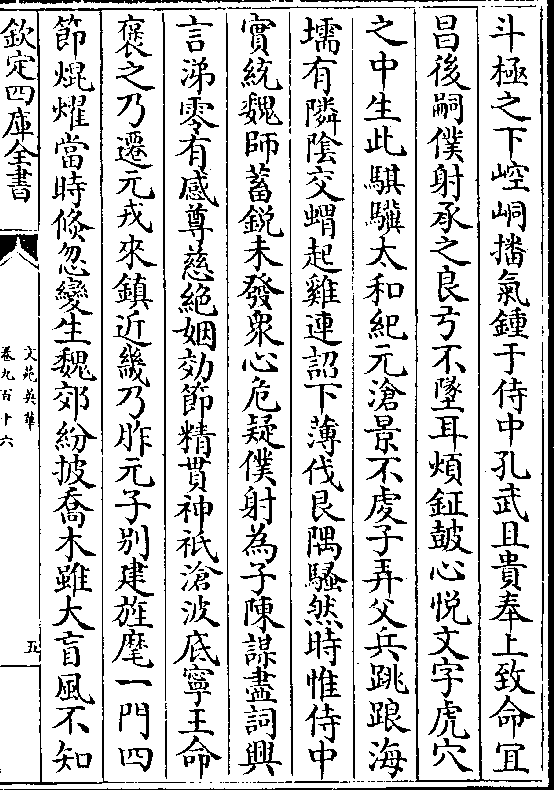 斗極之下崆峒播氣鍾于侍中孔武且貴奉上致命宜
昌後嗣僕射承之良弓不墜耳煩鉦鼓心悦文字虎穴
之中生此騏驥太和紀元滄景不䖍子弄父兵跳踉海
壖有隣陰交蝟起雞連詔下薄伐艮隅騷然時惟侍中
實統魏師蓄鋭未發衆心危疑僕射為子陳謀盡詞興
言涕零有感尊慈絶姻効節精貫神祇滄波底寧王命
褒之乃遷元戎來鎮近畿乃胙元子别建旌麾一門四
節焜燿當時倐忽變生魏郊紛披喬木雖大盲風不知
欽定四庫全書
文苑英華
卷九百十六
五